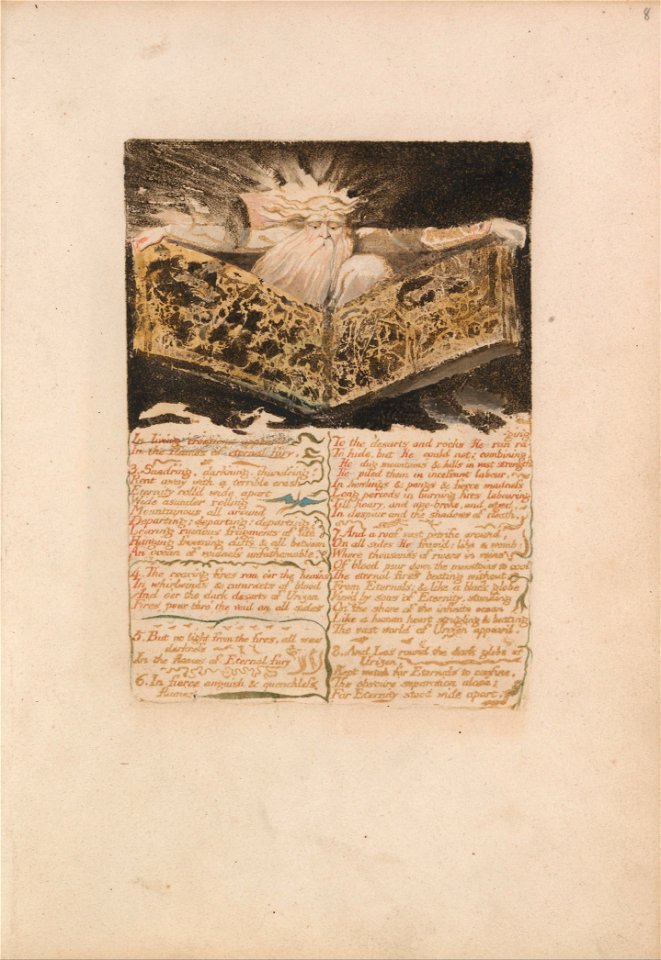 8
In living creations
In the flames of eternal fury.
3. Sundring, darkning, thundring:
Rent away with a terrible crash
Eternity rolld wide apart
Wide asunder rolling
Mountainous all around
Departing; departing; departing:
Leaving ruinous fragments of life
Hanging frowning cliffs & all between
An ocean of voidness unfathomable.
4. The roaring fires ran o'er the heavns
In whirlwinds & cataracts of blood
And o'er the dark desarts of Urizen
Fires pour thro' the void on all sides
5. But no light from the fires. all was
darkness
In the flames of Eternal fury
6. In fierce anguish & quenchless
flames
ging
To the desarts and rocks He ran ra-
To hide, but He could not: combining
He dug mountains & hills in vast strength
He piled them in incessant labour,
In howlings & pangs & fierce madness
Long periods in burning fires labouring
Till hoary, and age-broke, and aged,
In despair and the shadows of death.
7. And a roof, vast petrific around,
On all sides He fram'd: like a womb:
Where thousands of rivers in veins
Of blood pour down the mountains to cool
The eternal fires beating without
From Eternals; & like a black globe
View'd by sons of Eternity, standing
On the shore of the infinite ocean
Like a human heart strugling & beating
The vast world of Urizen appeard.
8. And Los round the dark globe of
Urizen,
Kept watch for Eternals to confine,
The obscure separation alone;
For Eternity stood wide apart,